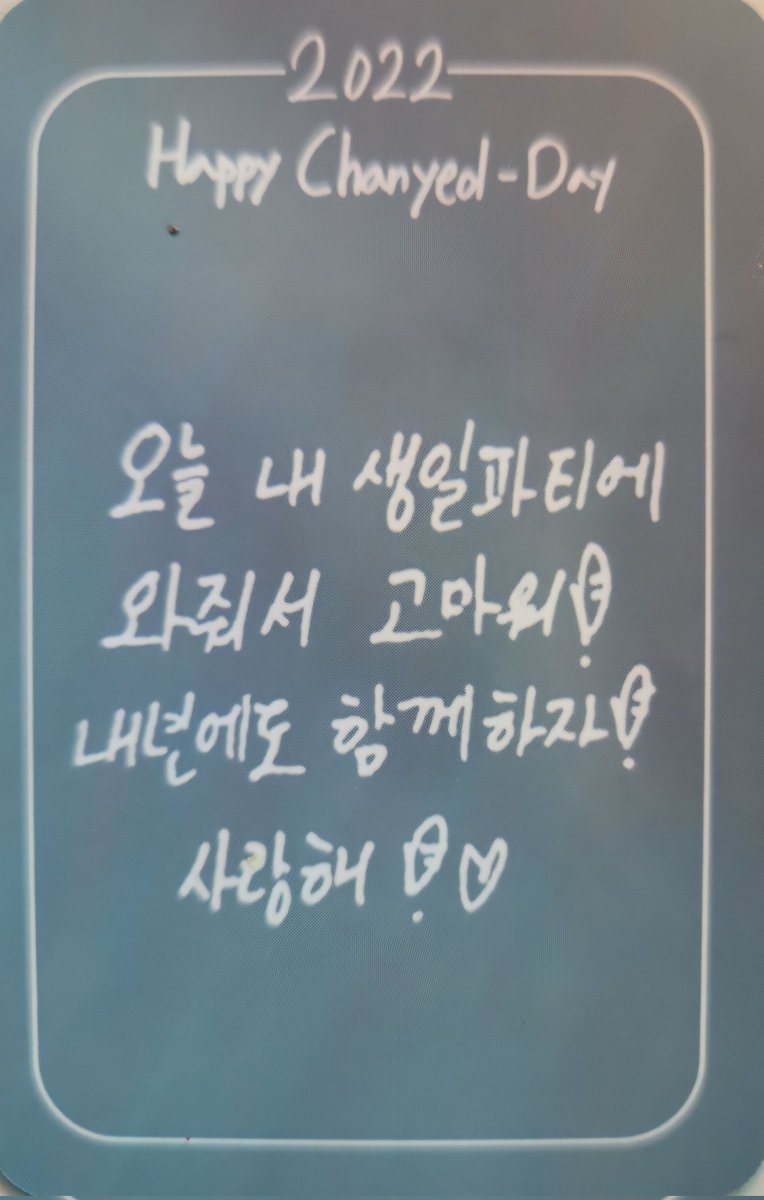 2022
Happy Chanyeol-Day
오늘 내 생일파티에
와줘서 고마워!
내년에도 함께하자!
사랑해!♡